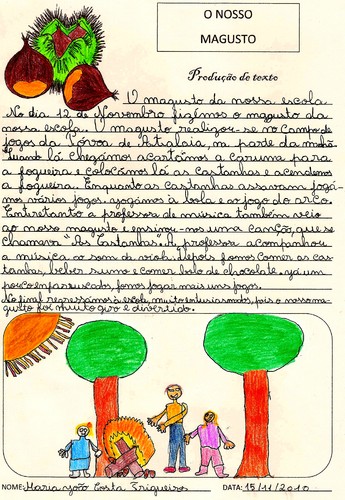 O NOSSO
MAGUSTO
Produção de texto
O magusto da nossa escola
No dia 12 de Novembro fizemos o magusto da
nossa escola. O magusto realizou-se no Campo de
jogos da Torre de Atalaia, na parte da manhã.
Quando lá chegámos acartámos a caruma para
a fogueira e colocámos lá as castanhas e acendemos
a fogueira. Enquanto as castanhas assavam fogá-
mos vários jogos, jogámos à bola e ao jogo do arco.
Entretanto a professora de música também veio
ao nosso magusto e ensinou-nos uma canção, que se
chamava "As Castanhas". A professora acompanhou
a música ao som da viola. Depois fomos comer as cas-
tanhas, beber sumo e comer bolo de chocolate. Já um
pouco enfarruscados, fomos jogar mais uns jogos.
No final regressámos à escola, muito entusiasmados, pois o nosso ma-
gusto foi muito giro e divertido.
NOME: Maria João Costa Trigueiros DATA: 15/11/2010